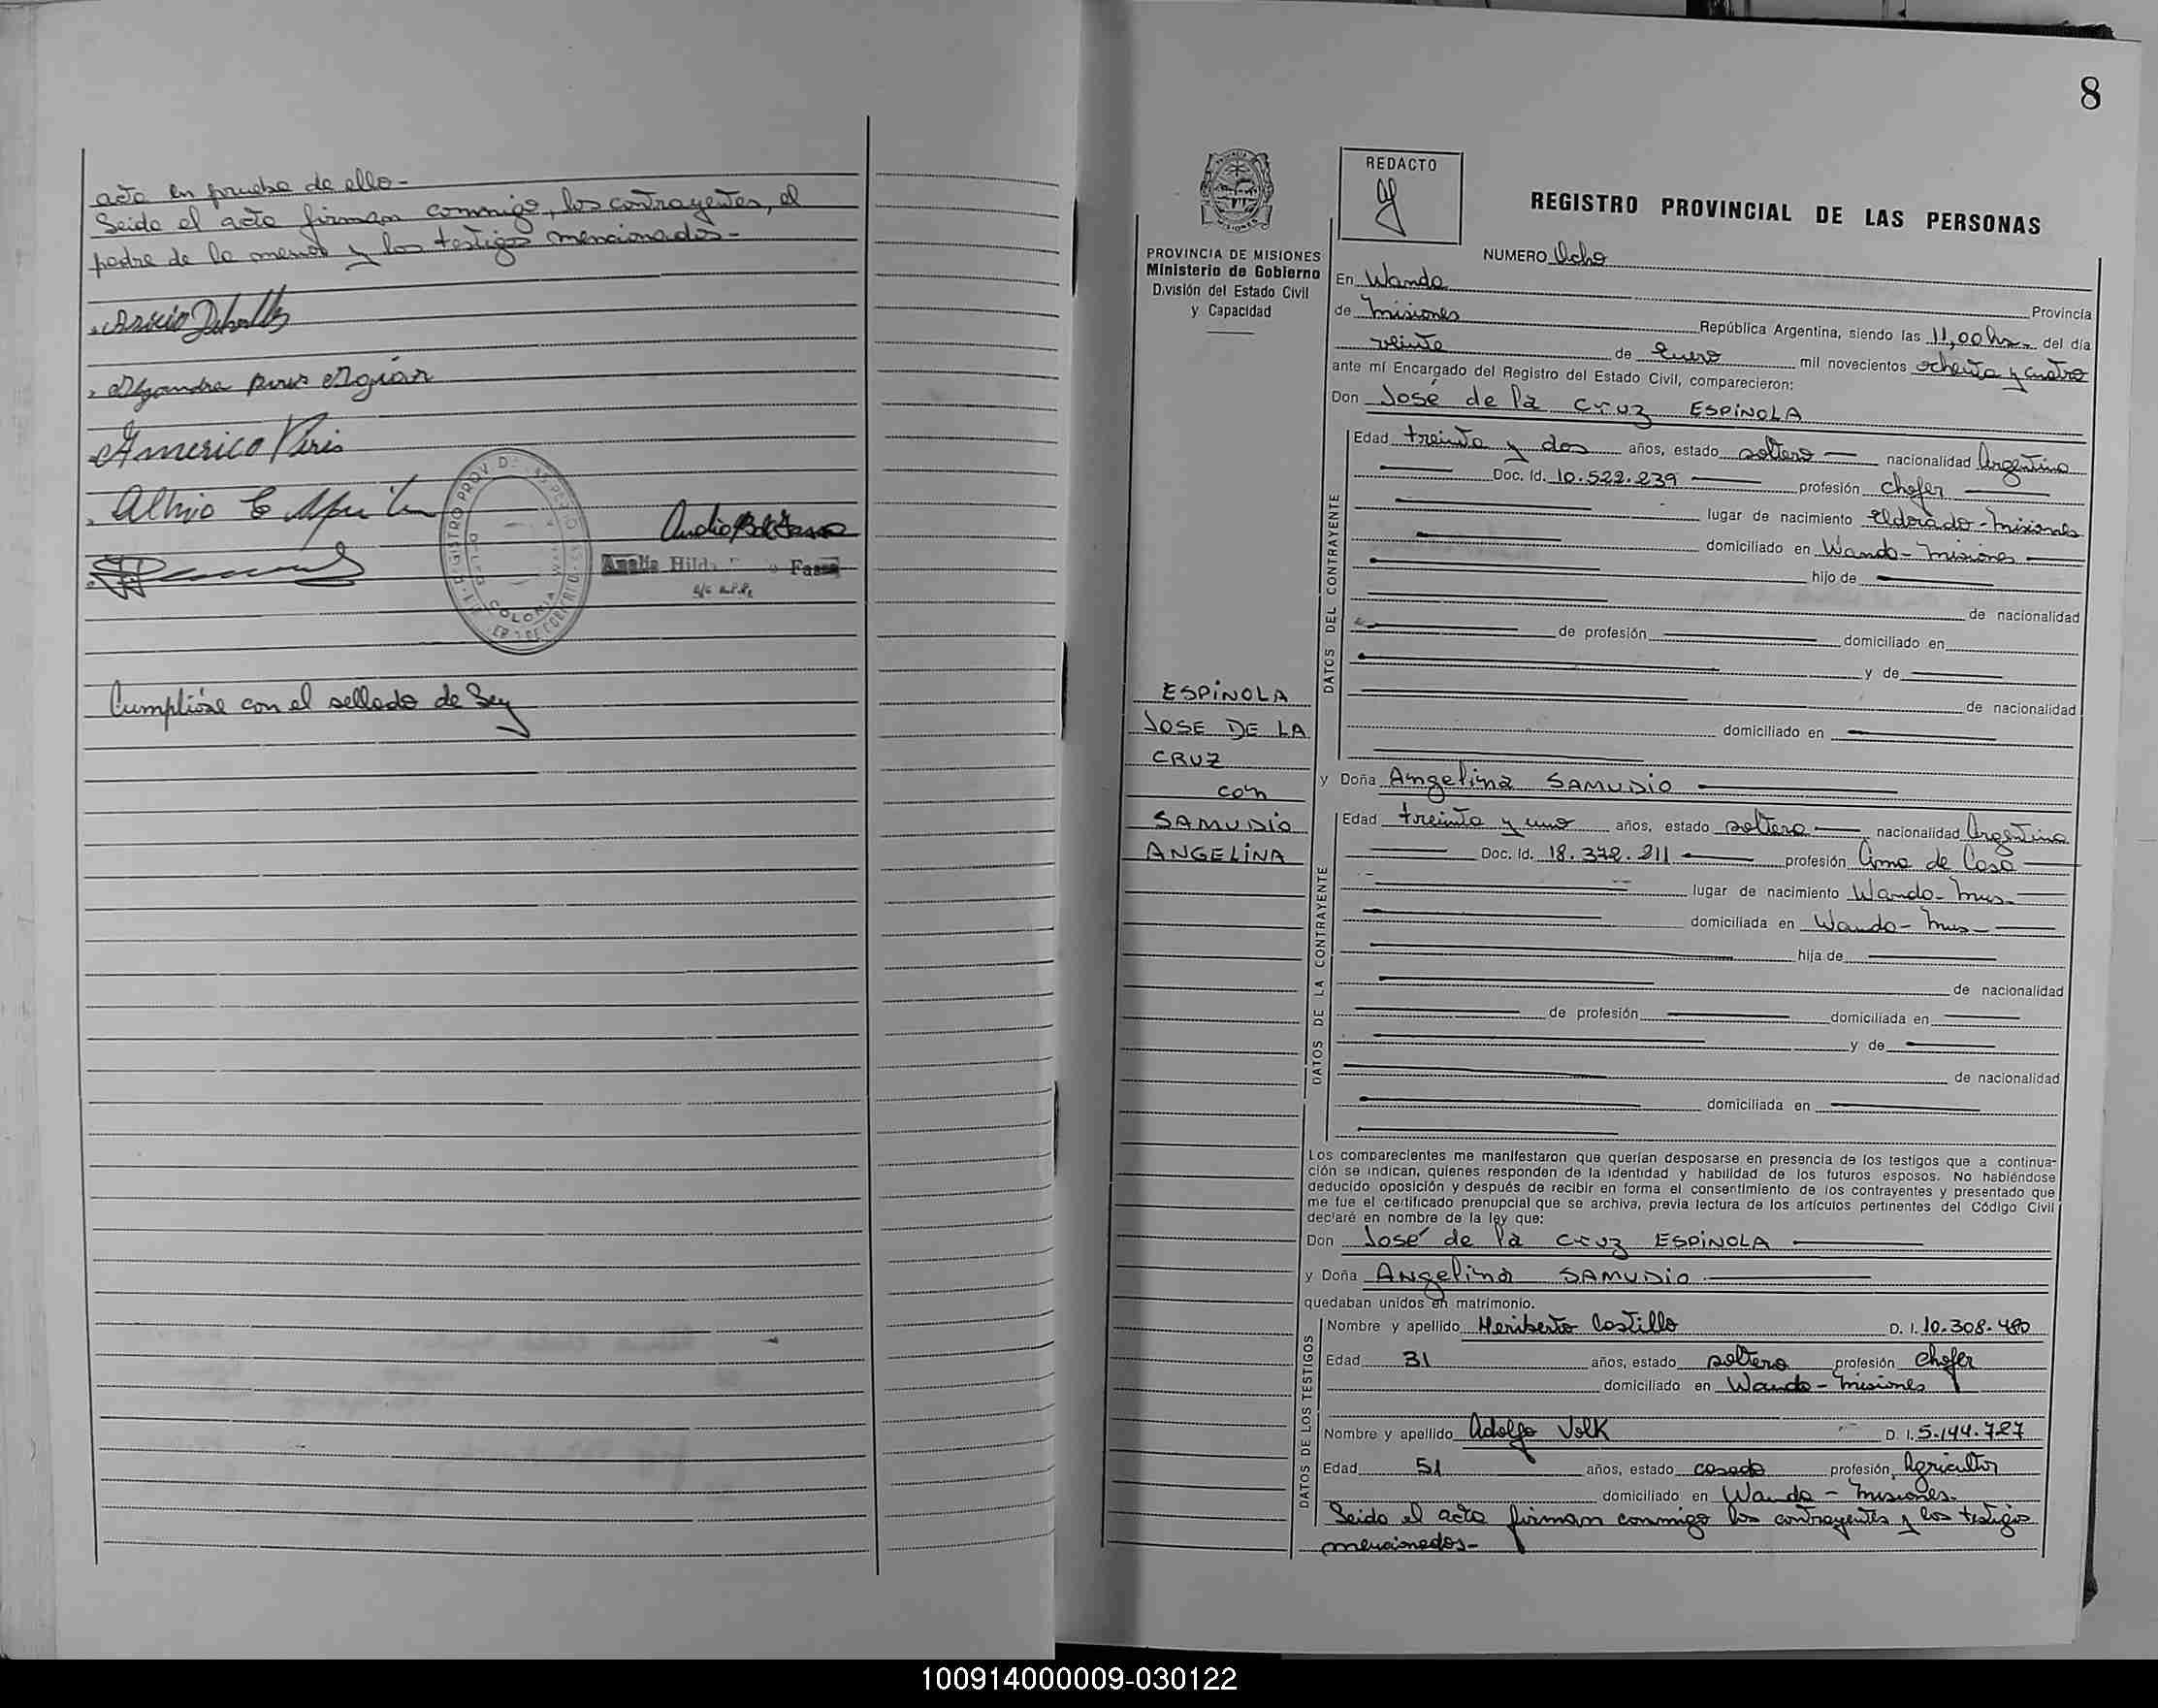 acta en prueba de ello-
Leida el acta firman conmigo, los contrayentes, el
padre de la menor y los testigos mencionados-
Americo Piris
Analia Hilda Fassa
COLONIA
Cumplióse con el sellado de Ley
8
PROVINCIA DE MISIONES
Ministerio de Gobierno
División del Estado Civil
y Capacidad
ESPINOLA
JOSE DE LA
CRUZ
con
SAMUDIO
ANGELINA
REDACTO
REGISTRO PROVINCIAL DE LAS PERSONAS
NUMERO Ocho
En Wanda Provincia
de Misiones República Argentina, siendo las 11,00 hs. del día
veinte de Enero mil novecientos ochenta y cuatro
ante mí Encargado del Registro del Estado Civil, comparecieron:
Don José de la cruz ESPINOLA
DATOS DEL CONTRAYENTE
Edad treinta y dos años, estado soltero nacionalidad Argentina
Doc. Id. 10.522.239 profesión chofer
lugar de nacimiento Eldorado-Misiones
domiciliado en Wanda-Misiones
hijo de
de nacionalidad
de profesión domiciliado en
y de
de nacionalidad
domiciliado en
y Doña Angelina SAMUDIO
DATOS DE LA CONTRAYENTE
Edad treinta y uno años, estado soltera nacionalidad Argentina
Doc. Id. 18.372.211 profesión Ama de Casa
lugar de nacimiento Wanda-Mnes-
domiciliada en Wanda-Mnes-
hija de
de nacionalidad
de profesión domiciliada en
y de
de nacionalidad
domiciliada en
Los comparecientes me manifestaron que querían desposarse en presencia de los testigos que a continua-
ción se indican, quienes responden de la identidad y habilidad de los futuros esposos. No habiéndose
deducido oposición y después de recibir en forma el consentimiento de los contrayentes y presentado que
me fue el certificado prenupcial que se archiva, previa lectura de los artículos pertinentes del Código Civil
declaré en nombre de la ley que:
Don José de la cruz ESPINOLA
y Doña Angelina SAMUDIO
quedaban unidos en matrimonio.
DATOS DE LOS TESTIGOS
Nombre y apellido Heriberto Castillo D. I. 10.308.480
Edad 31 años, estado soltero profesión chofer
domiciliado en Wanda-Misiones
Nombre y apellido Adolfo Volk D. I. 5.144.727
Edad 51 años, estado casado profesión Agricultor
domiciliado en Wanda-Misiones.
Leida el acta firman conmigo los contrayentes y los testigos
mencionados-
100914000009-030122